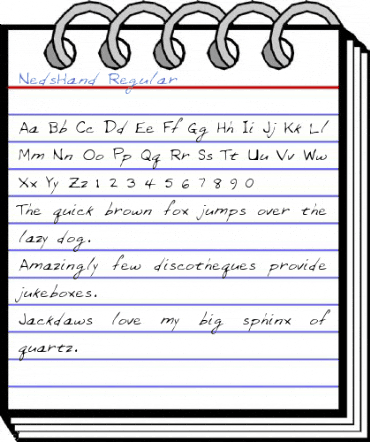 NedsHand Regular
Aa Bb Cc Dd Ee Ff Gg Hh Ii Jj Kk Ll
Mm Nn Oo Pp Qq Rr Ss Tt Uu Vv Ww
Xx Yy Zz 1 2 3 4 5 6 7 8 9 0
The quick brown fox jumps over the
lazy dog.
Amazingly few discotheques provide
jukeboxes.
Jackdaws love my big sphinx of
quartz.